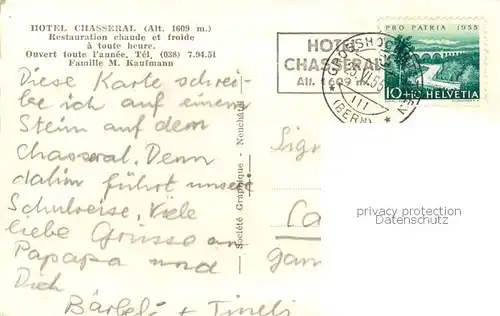 HOTEL CHASSERAL (Alt. 1609 m.)
Restauration chaude et froide
à toute heure.
Ouvert toute l'année, Tél. (038) 7.94.51
Famille M. Kaufmann
Diese Karte schrei-
be ich auf einem
Stein auf dem
Chasseral. Denn
dahin führt unsere
Schulreise, Viele
liebe Grüsse an
Papapa und
Dich
Bärbeli + Tineli
Société Graphique - Neuchâtel
HOTEL
CHASSERAL
Alt. 1609 m.
(BERN)
PRO PATRIA 1955
10+10 HELVETIA
Sig
privacy protection
Datenschutz